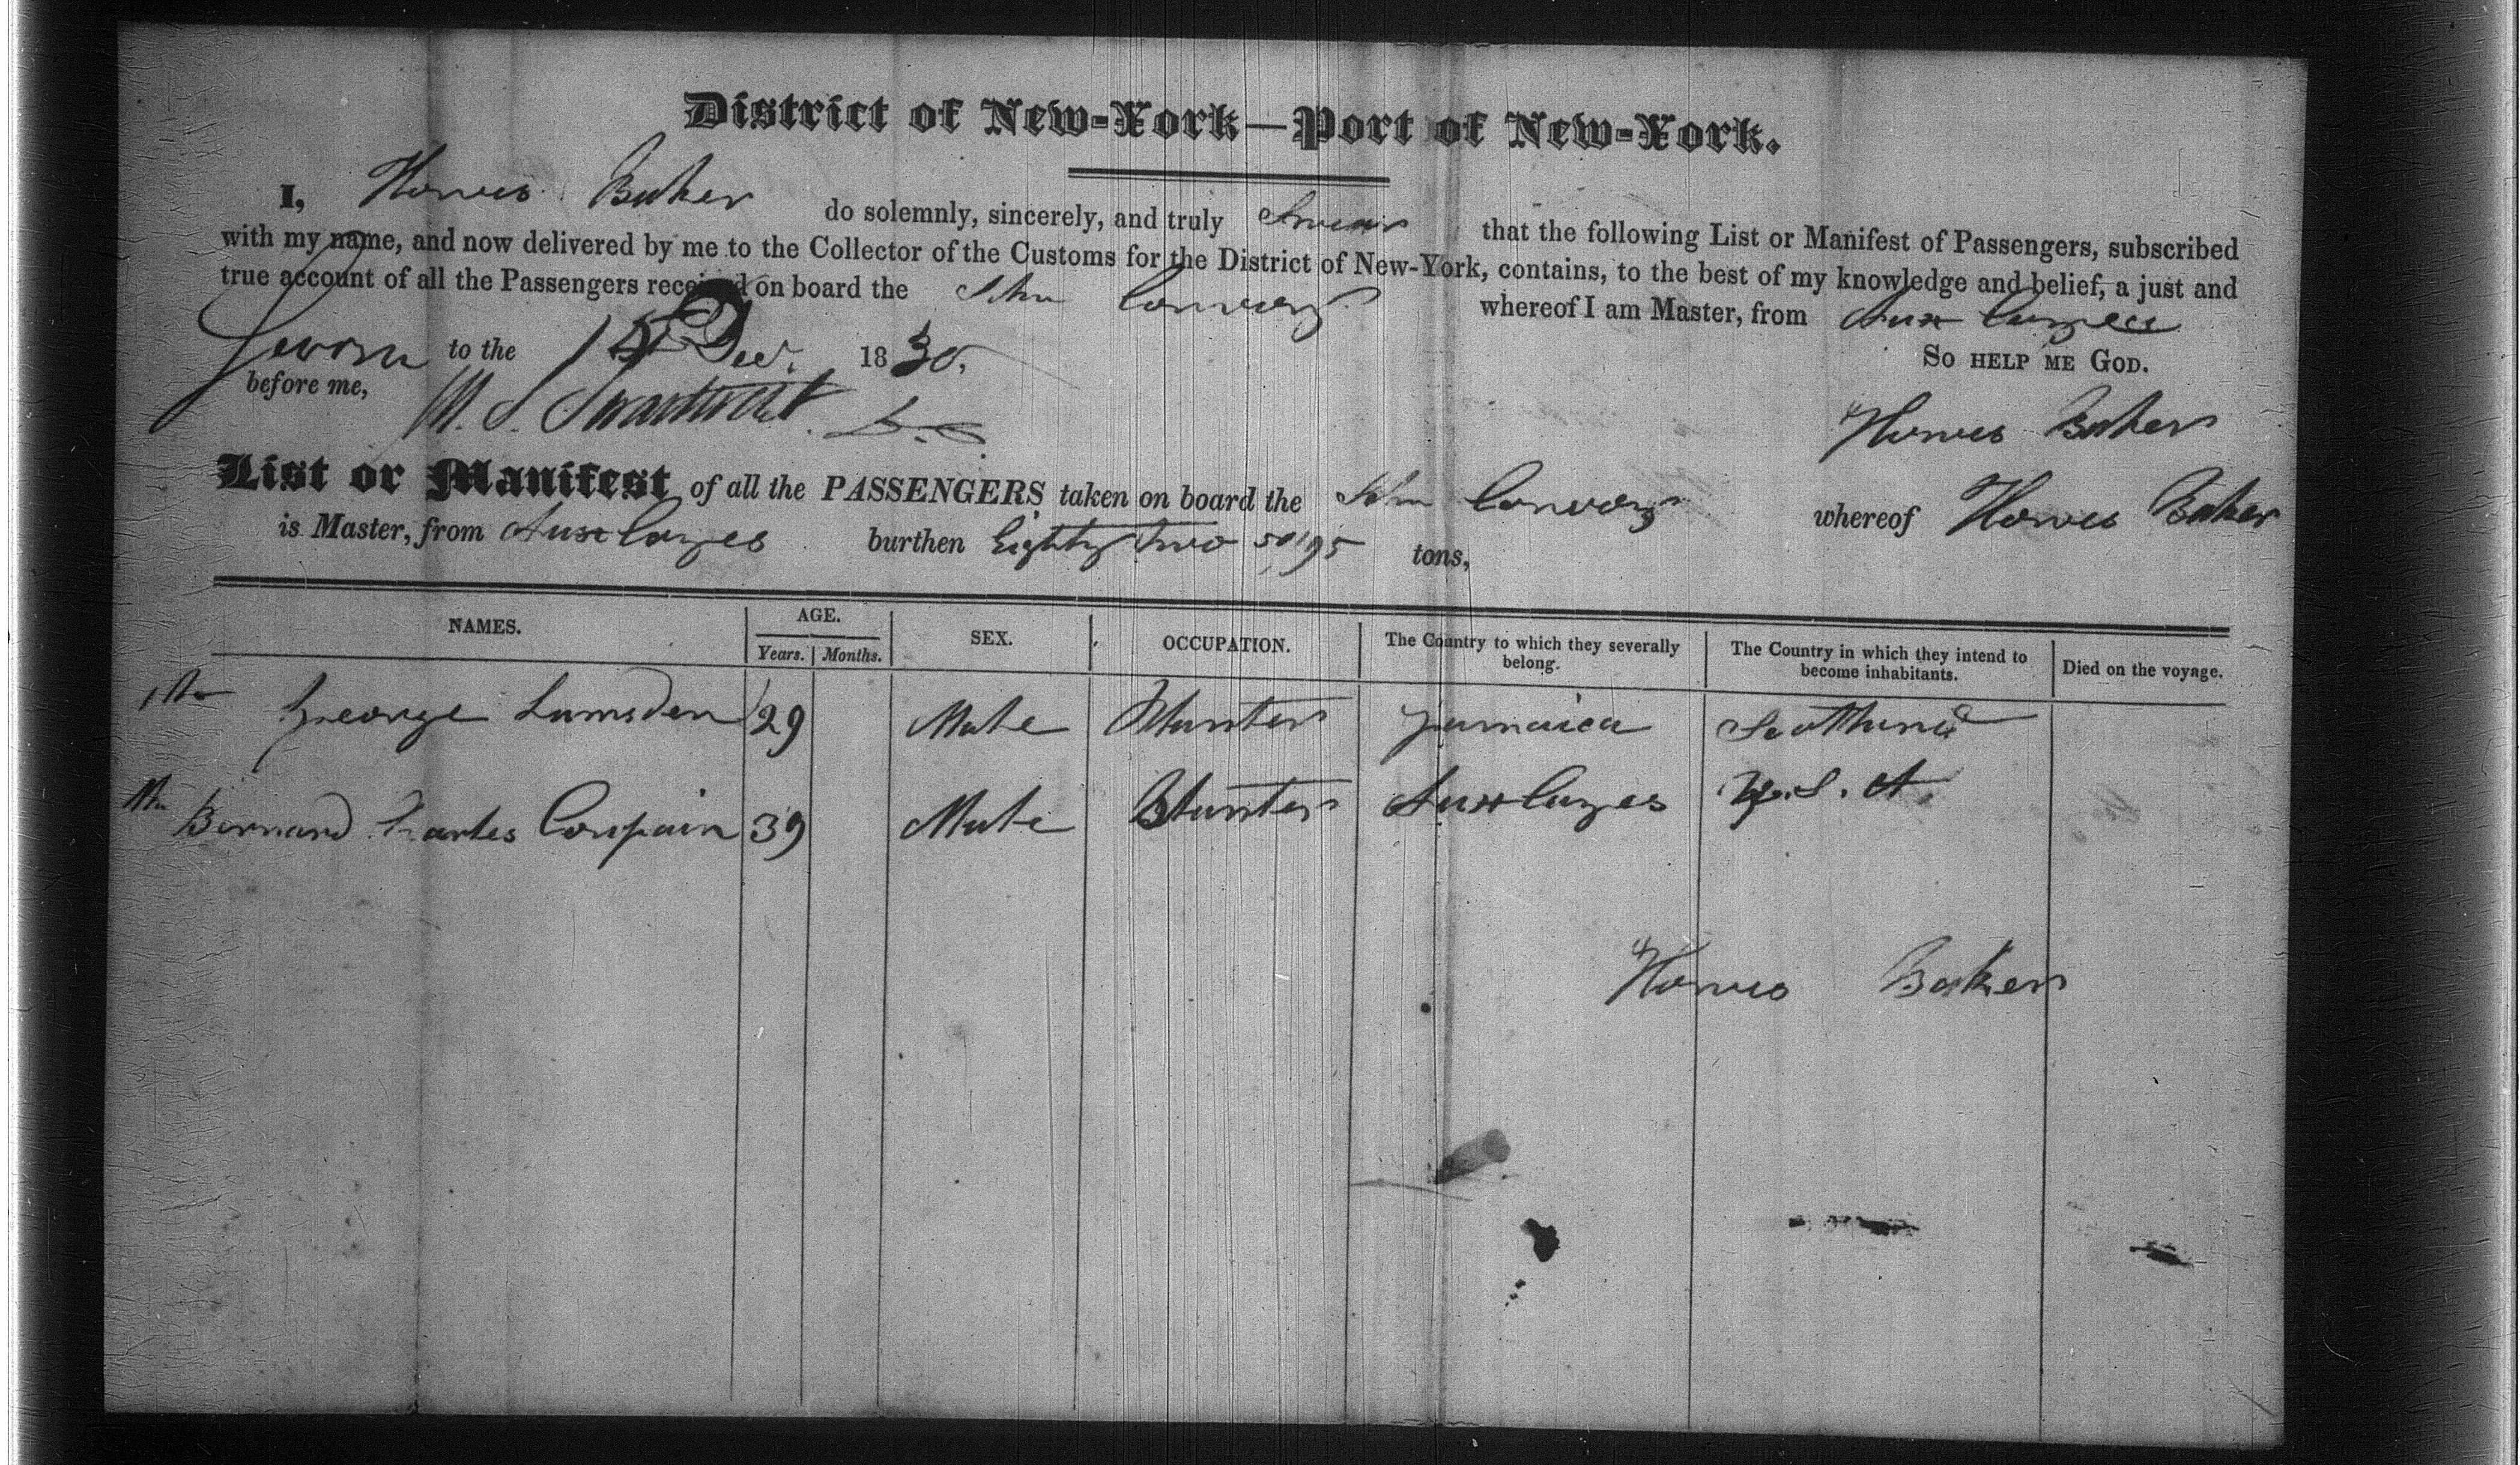 District of New-York—Port of New-York.
I, Howes Baker do solemnly, sincerely, and truly Swear that the following List or Manifest of Passengers, subscribed
with my name, and now delivered by me to the Collector of the Customs for the District of New-York, contains, to the best of my knowledge and belief, a just and
true account of all the Passengers received on board the John Conway whereof I am Master, from Aux Cayes
Sworn to the 15 Dec. 1830. So HELP ME GOD.
before me, M. S. Swartwout Howes Baker
List or Manifest of all the PASSENGERS taken on board the John Conway whereof Howes Baker
is Master, from Aux Cayes burthen Eighty two 50/95 tons,
NAMES. AGE. SEX. OCCUPATION. The Country to which they severally belong. The Country in which they intend to become inhabitants. Died on the voyage.
Years. Months.
George Lumsden 29 Male Planter Jamaica Scotland
Bernard Charles Coupain 39 Male Planter Aux Cayes U.S.A.
Howes Baker